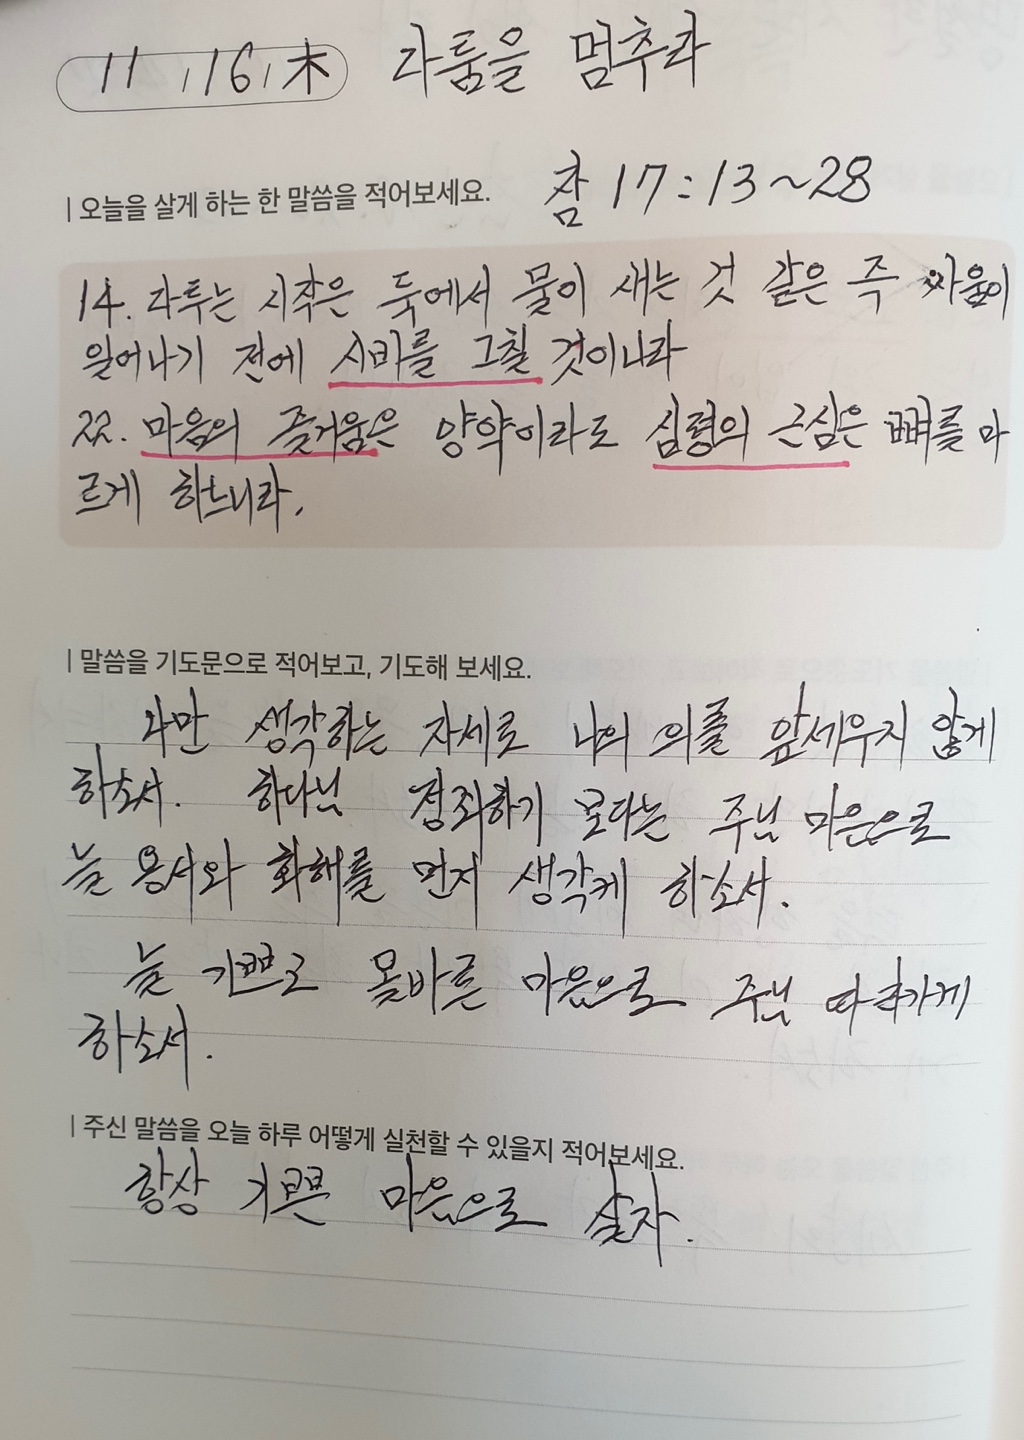 11 . 16 . 木 다툼을 멈추라
오늘을 살게 하는 한 말씀을 적어보세요. 잠 17:13~28
14. 다투는 시작은 둑에서 물이 새는 것 같은 즉 싸움이
일어나기 전에 시비를 그칠 것이니라
22. 마음의 즐거움은 양약이라도 심령의 근심은 뼈를 마
르게 하느니라.
말씀을 기도문으로 적어보고, 기도해 보세요.
나만 생각하는 자세로 나의 의를 앞세우지 않게
하소서. 하나님 정죄하기 보다는 주님 마음으로
늘 용서와 화해를 먼저 생각케 하소서.
늘 기쁘고 올바른 마음으로 주님 따라가게
하소서.
주신 말씀을 오늘 하루 어떻게 실천할 수 있을지 적어보세요.
항상 기쁜 마음으로 살자.